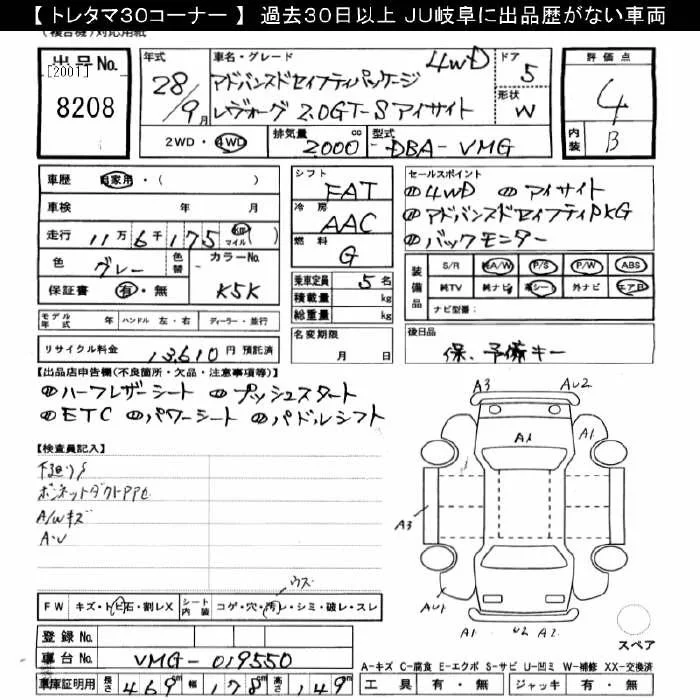 【トレタマ30コーナー】過去30日以上 JU岐阜に出品歴がない車両
(複合機)対応用紙
出品No.
[2001]
8208
年式
28/9月
車名・グレード
アドバンスドセイフティパッケージ 4WD
レヴォーグ 2.0GT-Sアイサイト
ドア
5
形状
W
評価点
4
内装
B
2WD・4WD
排気量
2000 cc
型式
DBA-VMG
車歴 自家用・( )
車検 年 月
走行 11万6千175 km マイル ( )
色 グレー 色替 カラーNo. K5K
保証書 有・無
モデル年式 年 ハンドル 左・右 ディーラー・並行
リサイクル料金 13,610円 預託済
シフト
FAT
冷房
AAC
燃料
G
乗車定員 5名
積載量 kg
総重量 kg
名変期限
月 日
セールスポイント
①4WD ②アイサイト
③アドバンスドセイフティPKG
④バックモニター
装備品
S/R 純A/W P/S P/W ABS
純TV 純ナビ 革シート 外ナビ エアB
ナビ型番:
後日品
保、予備キー
【出品店申告欄(不良箇所・欠品・注意事項等)】
ハーフレザーシート プッシュスタート
ETC パワーシート パドルシフト
【検査員記入】
下廻りS
A/Wキズ
A・U
ウス
FW キズ・トビ石・割レX シート内装 コゲ・穴・汚レ・シミ・破レ・スレ
A3 AU2
A1 A1
A3
AU1
A1 U2 A2
スペア
登録No.
車台No. VMG-019550
車庫証明用 長さ 469cm 幅 178cm 高さ 149cm
A-キズ C-腐食 E-エクボ S-サビ U-凹ミ W-補修 XX-交換済
工具 有・無 ジャッキ 有・無